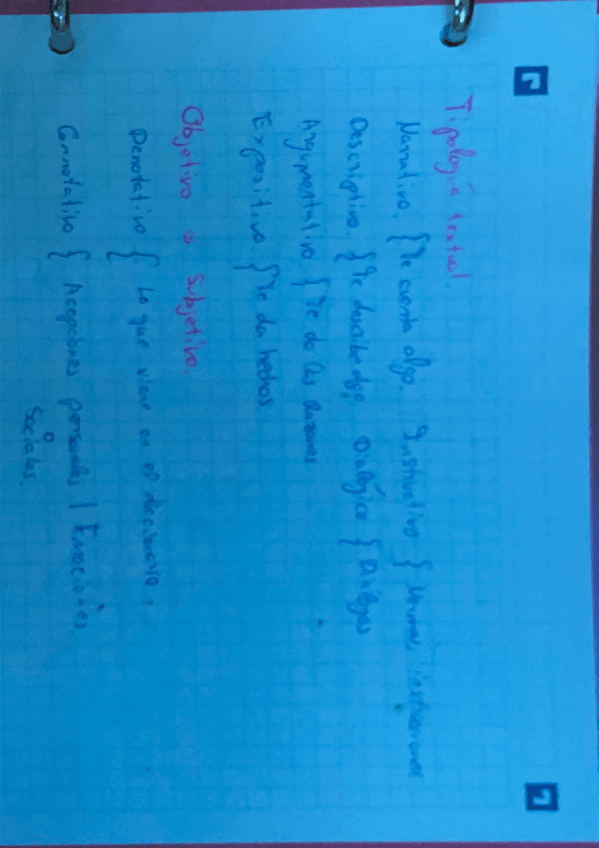 Tipología textual.
Narrativo. { Te cuenta algo. Instructivo { Normas, instrucciones
Descriptivo. { Te describe algo, Dialógico { Diálogos
Argumentativo. { Te da las razones
Expositivo { Te da hechos
Objetivo o Subjetivo.
Denotativo { Lo que viene en el diccionario,
Connotativo { Acepciones personales | Emociones.
o
Sociales.